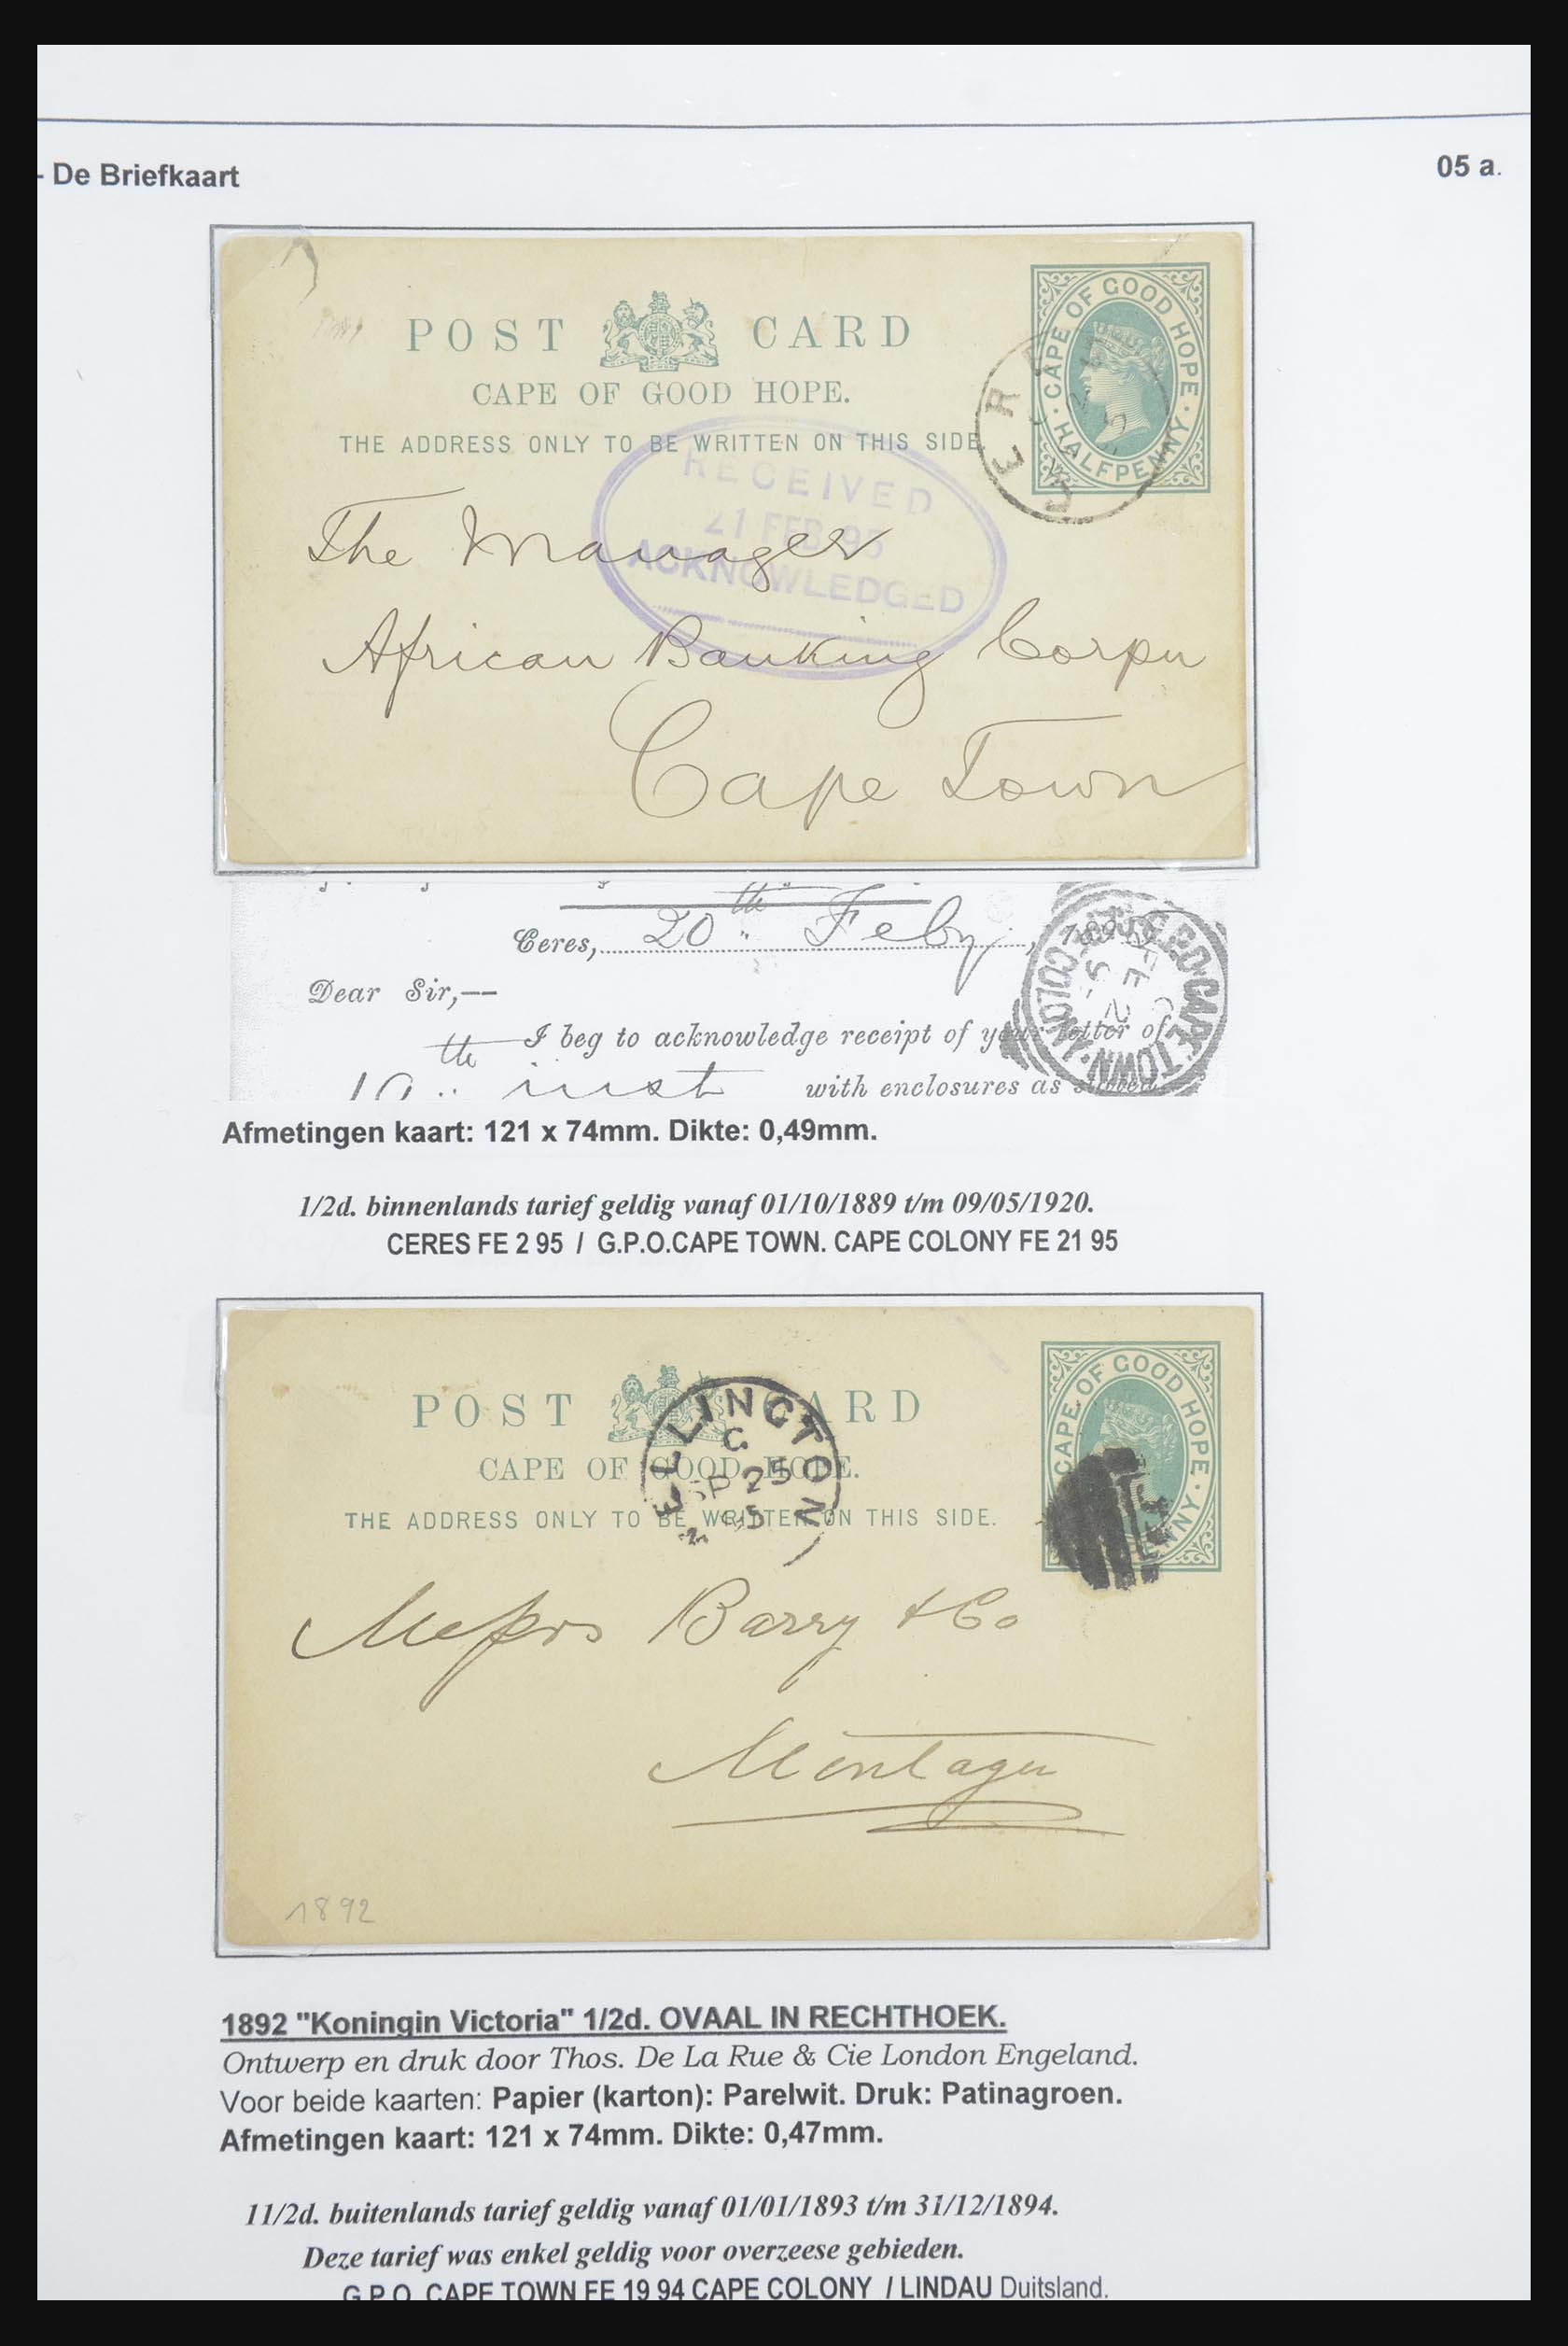 - De Briefkaart
05 a.
POST CARD
CAPE OF GOOD HOPE.
THE ADDRESS ONLY TO BE WRITTEN ON THIS SIDE.
CAPE OF GOOD HOPE · HALFPENNY ·
RECEIVED
21 FEB 95
ACKNOWLEDGED
The Manager
African Banking Corpn
Cape Town
Ceres, 20th Feby, 189
G.P.O. CAPE TOWN.
Dear Sir,—
I beg to acknowledge receipt of your letter of
th inst with enclosures as stated
Afmetingen kaart: 121 x 74mm. Dikte: 0,49mm.
1/2d. binnenlands tarief geldig vanaf 01/10/1889 t/m 09/05/1920.
CERES FE 2 95 / G.P.O.CAPE TOWN. CAPE COLONY FE 21 95
POST CARD
CAPE OF GOOD HOPE.
THE ADDRESS ONLY TO BE WRITTEN ON THIS SIDE.
CAPE OF GOOD HOPE ·
ELLINGTON
G
SP 25
95
Messrs Barry & Co
Montagu
1892
1892 "Koningin Victoria" 1/2d. OVAAL IN RECHTHOEK.
Ontwerp en druk door Thos. De La Rue & Cie London Engeland.
Voor beide kaarten: Papier (karton): Parelwit. Druk: Patinagroen.
Afmetingen kaart: 121 x 74mm. Dikte: 0,47mm.
11/2d. buitenlands tarief geldig vanaf 01/01/1893 t/m 31/12/1894.
Deze tarief was enkel geldig voor overzeese gebieden.
G.P.O. CAPE TOWN FE 19 94 CAPE COLONY / LINDAU Duitsland.